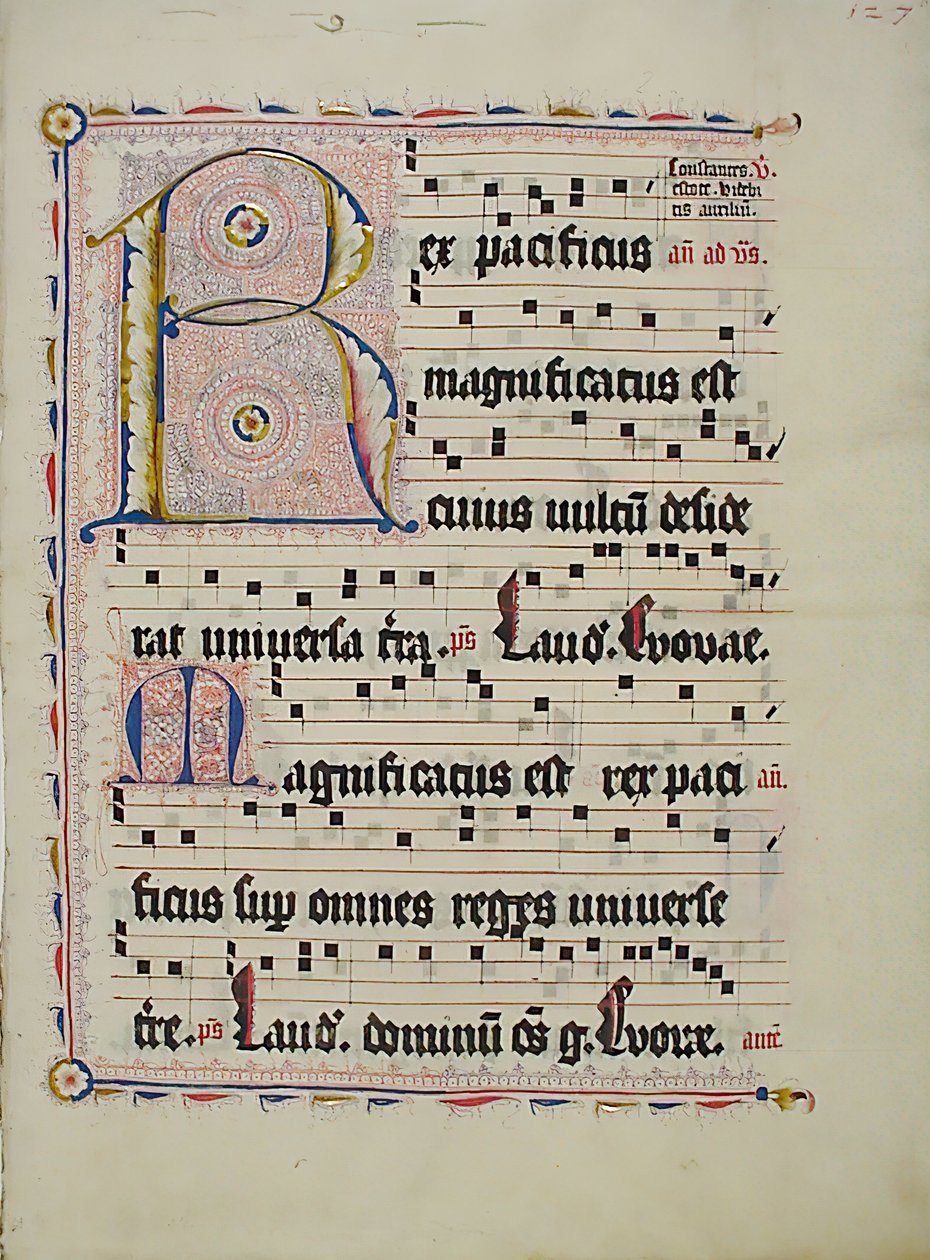 127
Constantes. V̄.
estote. videbi
tis auxiliū.
Rex pacificus añ ad v̄s.
magnificatus est
cuius uultū deside
rat uniuersa t̄ra. p̄s Laud'. Evovae.
Magnificatus est rex paci añ.
ficus sup omnes reges uniuerse
t̄re. p̄s Laud'. dominū o̅s g. Evovae. ant̄